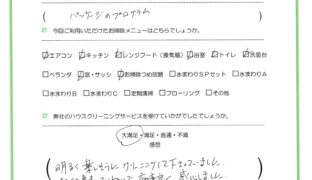 (パッケージのプログラム)
今回ご利用いただけたお掃除メニューはどちらでしょうか。
☑エアコン ☑キッチン ☑レンジフード(換気扇) ☑浴室 ☑トイレ ☑洗面台
□ベランダ ☑窓・サッシ ☑お掃除つめ放題 □水まわりSPセット □水まわりA
□水まわりB □水まわりC □定期清掃 □フローリング □その他
弊社のハウスクリーニングサービスを受けていかがでしたでしょうか。
大満足・満足・普通・不満
感想
明るく楽しそうにクリーニングして下さっていました。
感心しました。